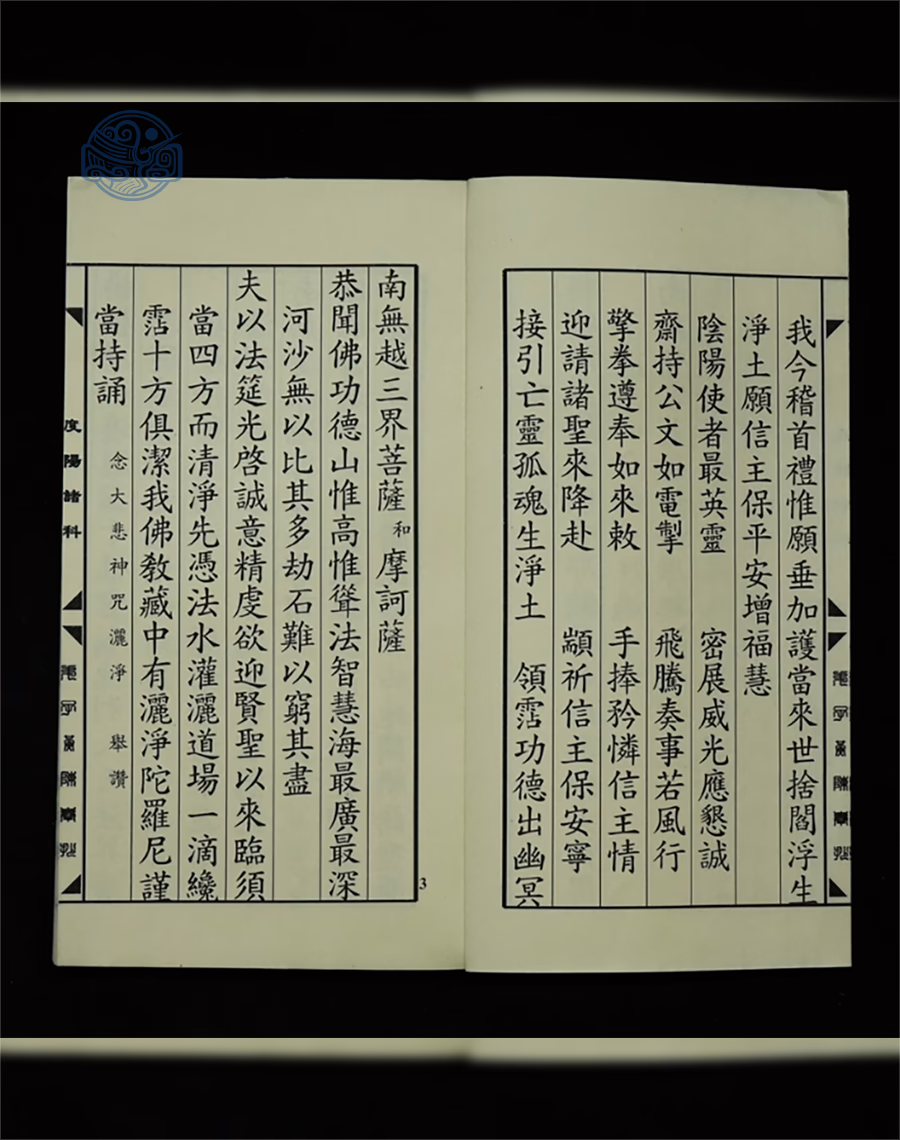 我今稽首禮惟願垂加護當來世捨閻浮生
淨土願信主保平安增福慧
陰陽使者最英靈 密展威光應懇誠
齋持公文如電掣 飛騰奏事若風行
擎拳遵奉如來敕 手捧矜憐信主情
迎請諸聖來降赴 顓祈信主保安寧
接引亡靈孤魂生淨土 領霑功德出幽冥
南無越三界菩薩和摩訶薩
恭聞佛功德山惟高惟聳法智慧海最廣最深
河沙無以比其多劫石難以窮其盡
夫以法筵光啓誠意精虔欲迎賢聖以來臨須
當四方而清淨先憑法水灌灑道場一滴纔
霑十方俱潔我佛教藏中有灑淨陀羅尼謹
當持誦 念大悲神咒灑淨 舉讚
度陽諸科
3